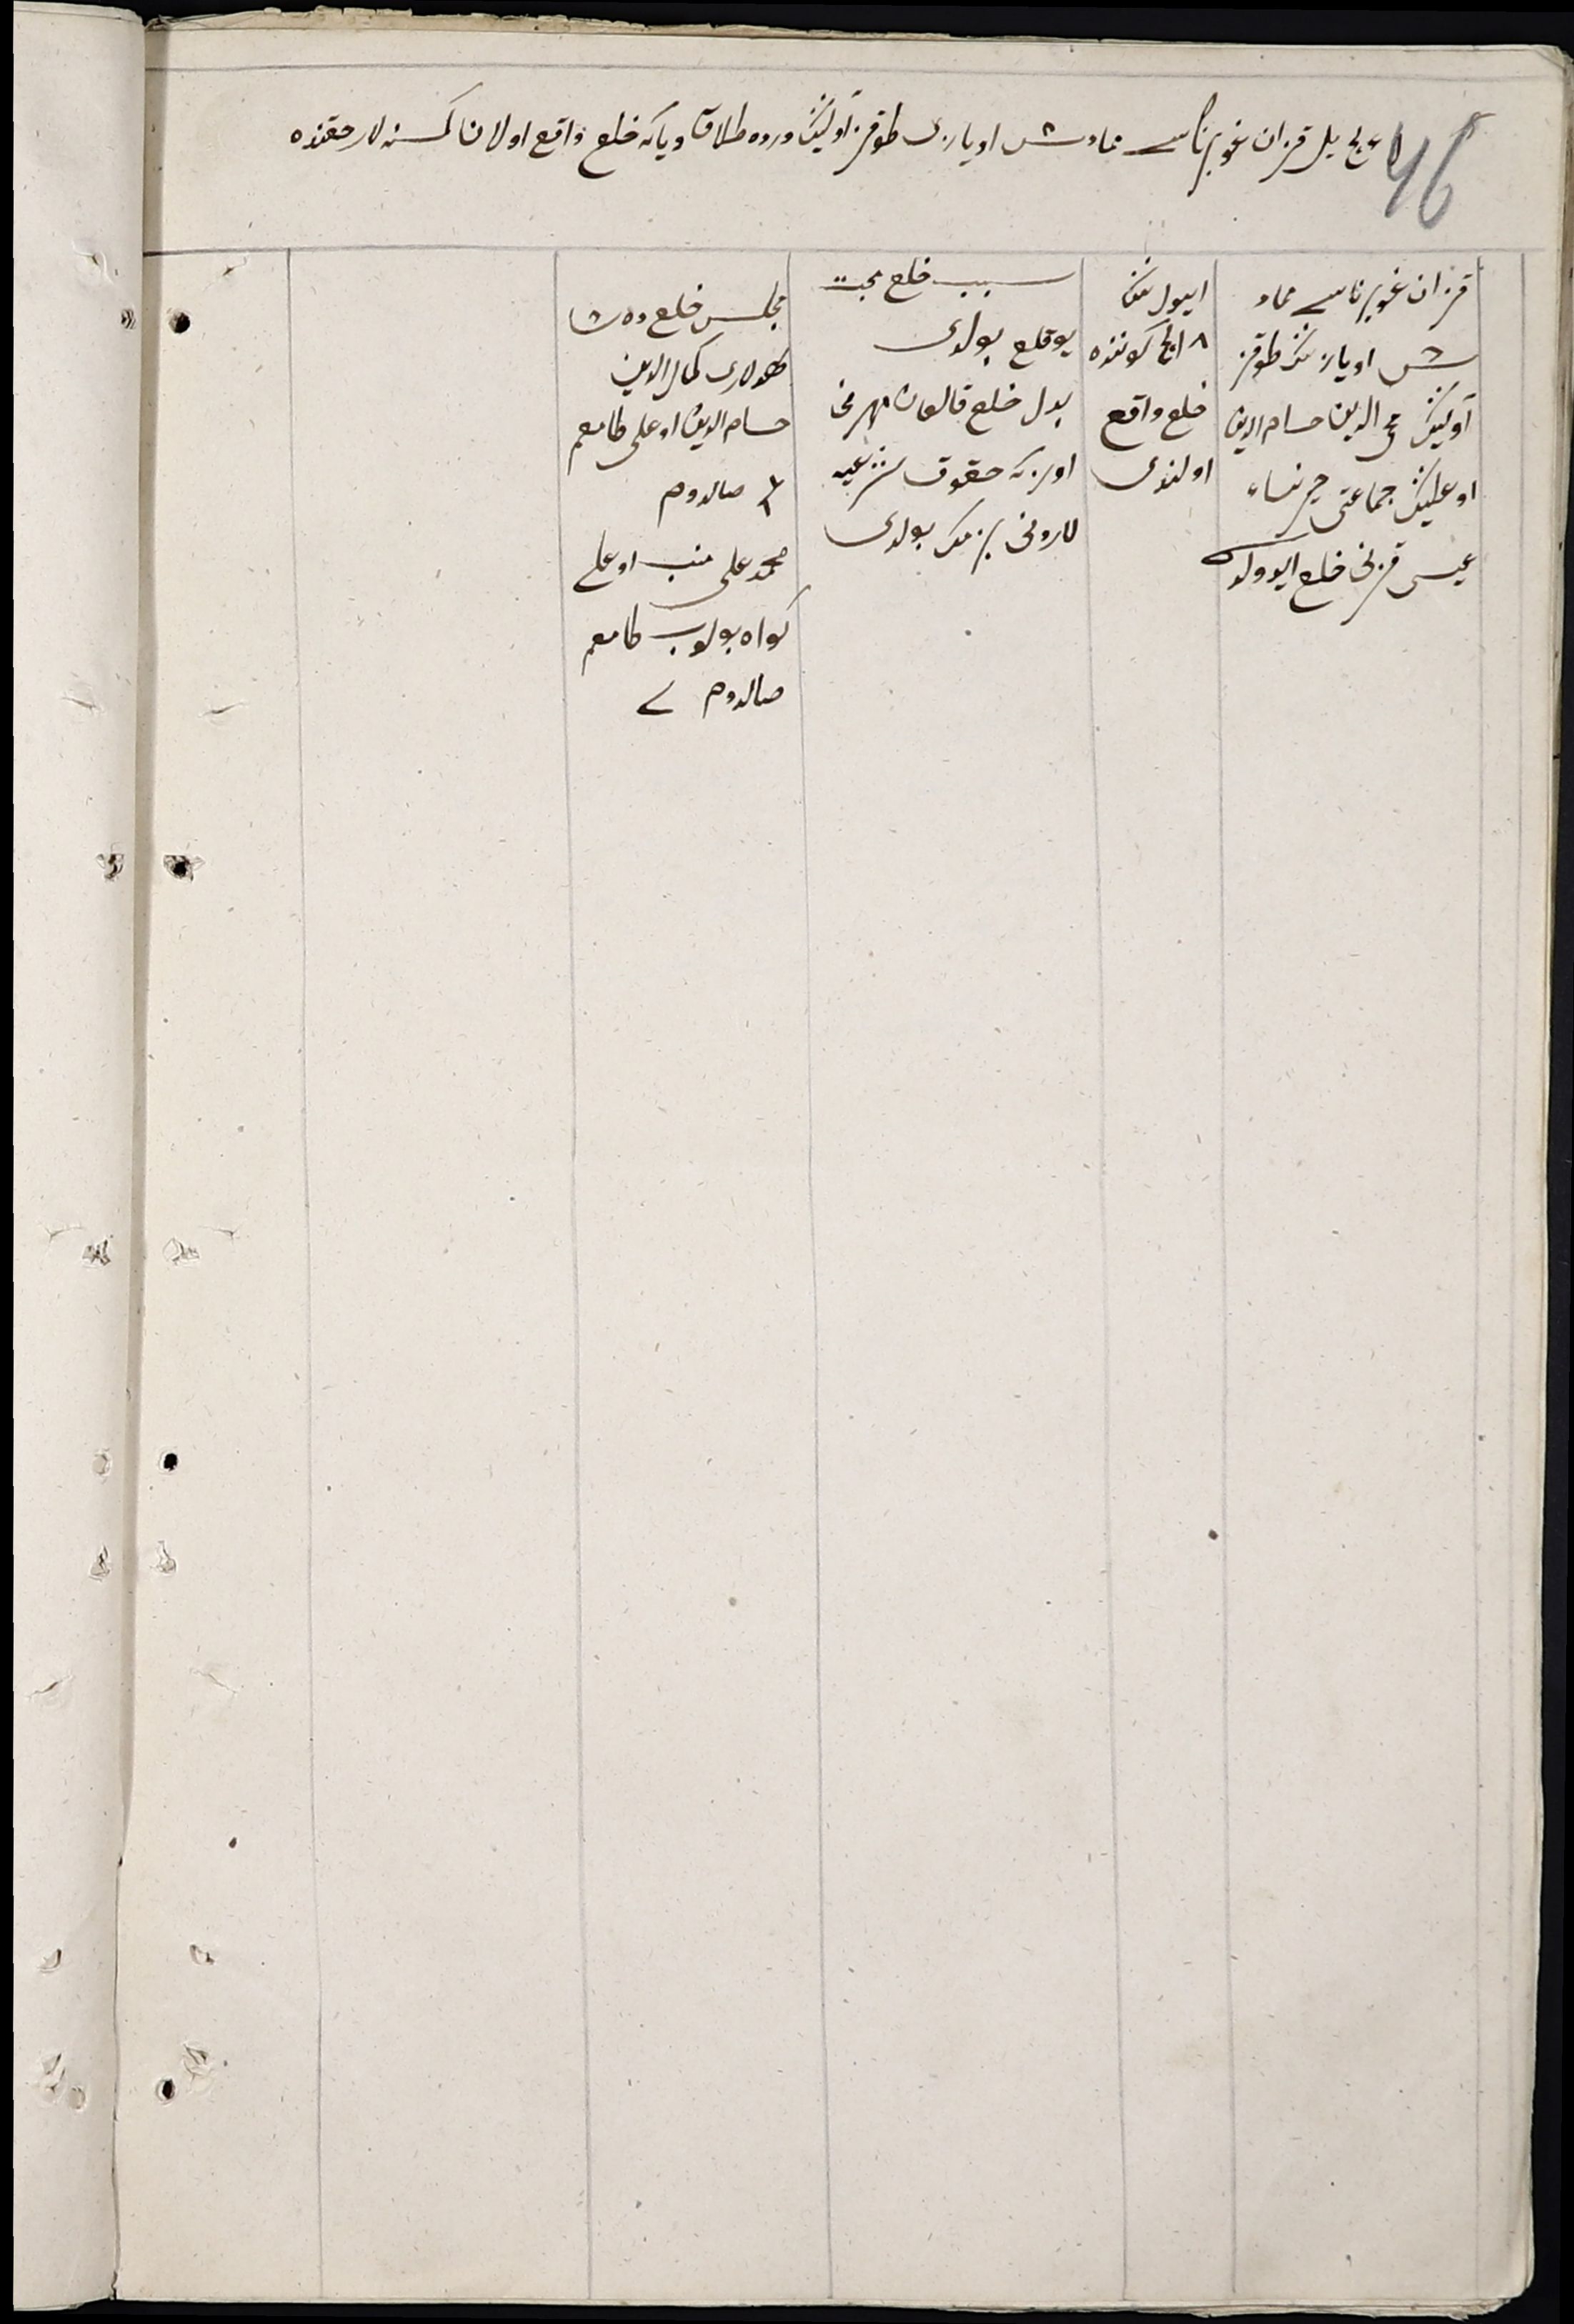 46
نچی یل قزان غوبرناسے ممادش اویازی طوقز آولیننک دروه طلاق ویاکه خلع واقع اولان کسنه لار حقنده
قزان غوبرناسے مماد
ش اویازیننک طوقز
آولیننک محی الدین حسام الدین
اوغلیننک جماعتی خیرنساء
عیسی قزنی خلع ایدوولدی
اییول ننک
۸ انچی کوننده
خلع واقع
اولندی
سبب خلع محبت
یوقلغ بولدی
بدل خلع قالغان مهرنی
اوزکه حقوق شرعیه
لارونی بزمک بولدی
مجلس خلع ده شا
هدلاری کمال الدین
حسام الدین اوغلی طامغم
صالدوم
محمد علی اوغلے
کواه بولوب طامغم
صالدوم